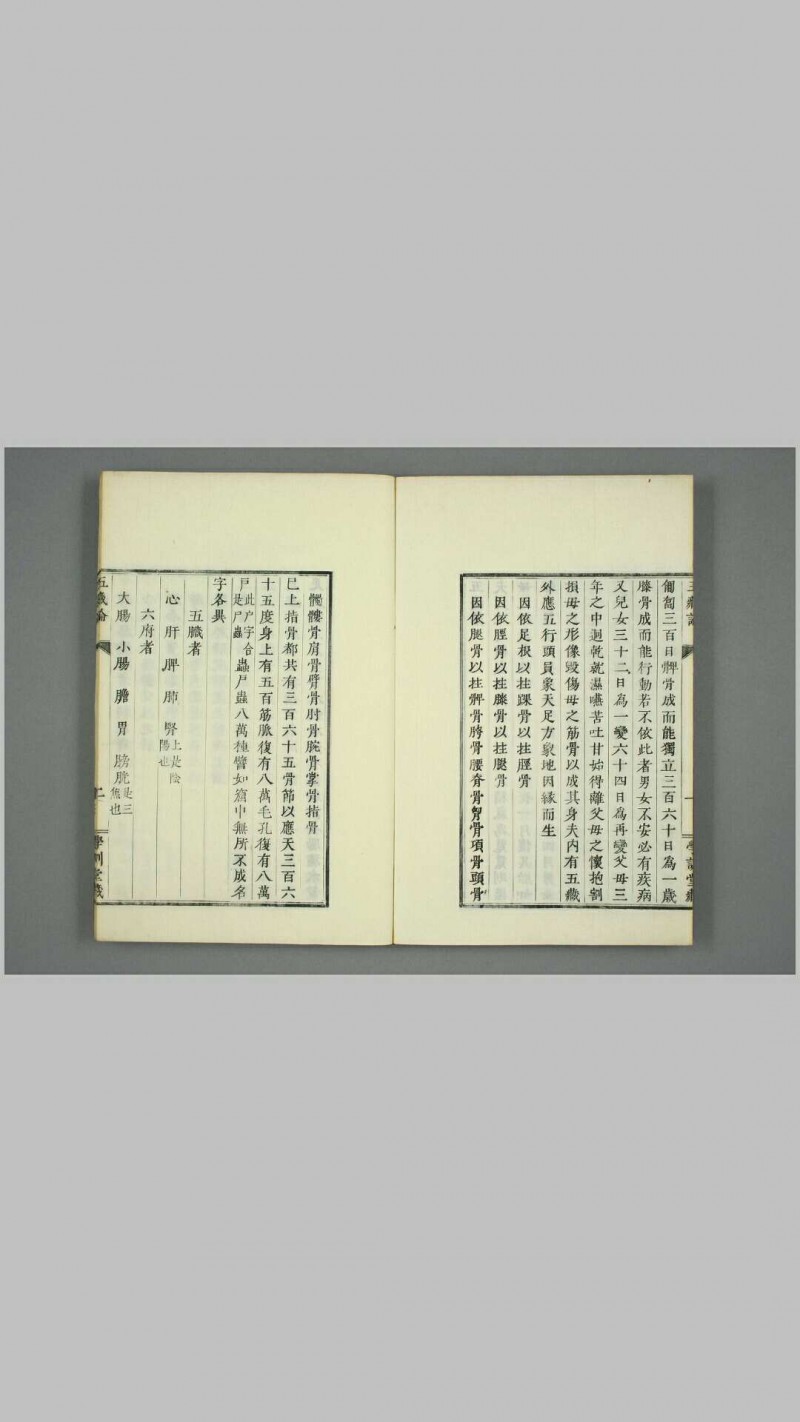 匍匐三百日髀骨成而能獨立三百六十日為一歲
膝骨成而能行動若不依此者男女不安必有疾病
又兒女三十二日為一變六十四日為再變父母三
年之中迴乾就濕嚥苦吐甘始得離父母之懷抱割
損母之形像毀傷母之筋骨以成其身夫內有五藏
外應五行頭員象天足方象地因緣而生
因依足根以拄踝骨以拄脛骨
因依脛骨以拄膝骨以拄腿骨
因依腿骨以拄髀骨胯骨腰脊骨胷骨項骨頭骨
髑髏骨肩骨臂骨肘骨腕骨掌骨指骨
巳上指骨都共有三百六十五骨節以應天三百六
十五度身上有五百筋脈復有八萬毛孔復有八萬
戶此戶字合是尸蟲蟲尸蟲八萬種譬如窟中無所不成名
字各異
五臟者
心 肝 脾 肺 腎上是陰陽也
六府者
大腸 小腸 膽 胃 膀胱是三焦也
五藏論
二
學訓堂藏